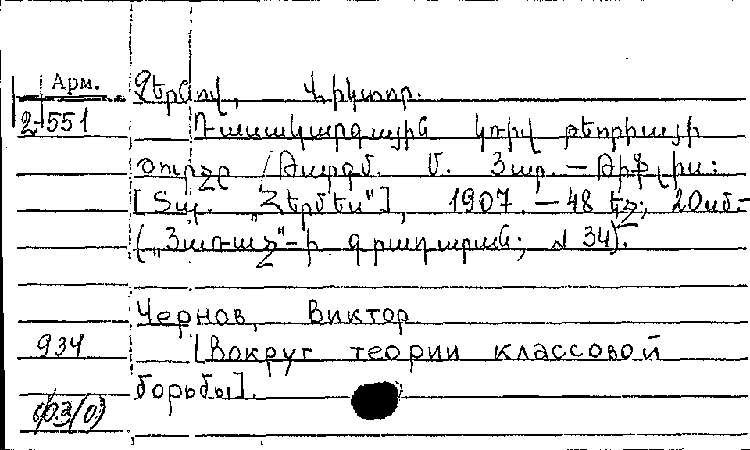 Арм.
Չերնով, Վիկտոր.
2-551
Դասակարգային կռիվ թեորիայի
շուրջը / Թարգմ. Մ. Յար. — Թիֆլիս:
[Տպ. „Հերմես“], 1907. — 48 էջ; 20սմ.—
(„Յառաջ“-ի գրադարան; N 34).
Чернов, Виктор
934
[Вокруг теории классовой
борьбы].